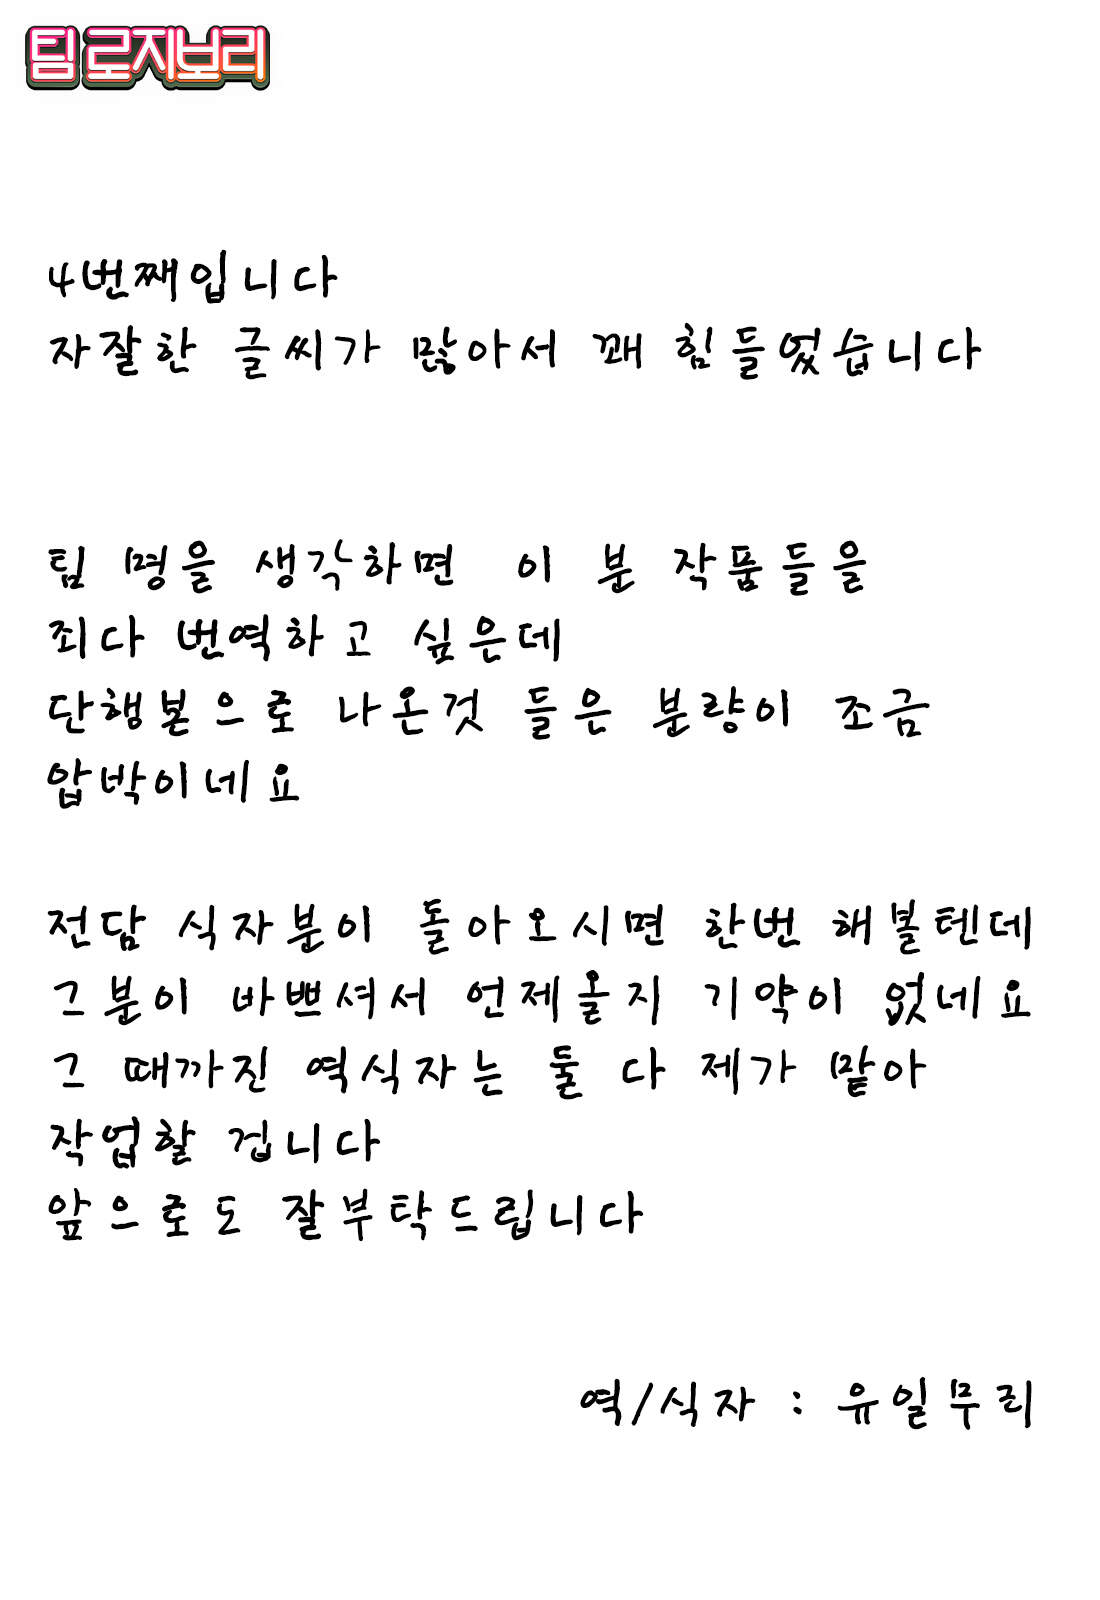 팀 로지보리
4번째입니다
자잘한 글씨가 많아서 꽤 힘들었습니다
팀 명을 생각하면 이 분 작품들을
죄다 번역하고 싶은데
단행본으로 나온것 들은 분량이 조금
압박이네요
전담 식자분이 돌아오시면 한번 해볼텐데
그분이 바쁘셔서 언제올지 기약이 없네요
그 때까진 역식자는 둘 다 제가 맡아
작업할 겁니다
앞으로도 잘부탁드립니다
역/식자 : 유일무리